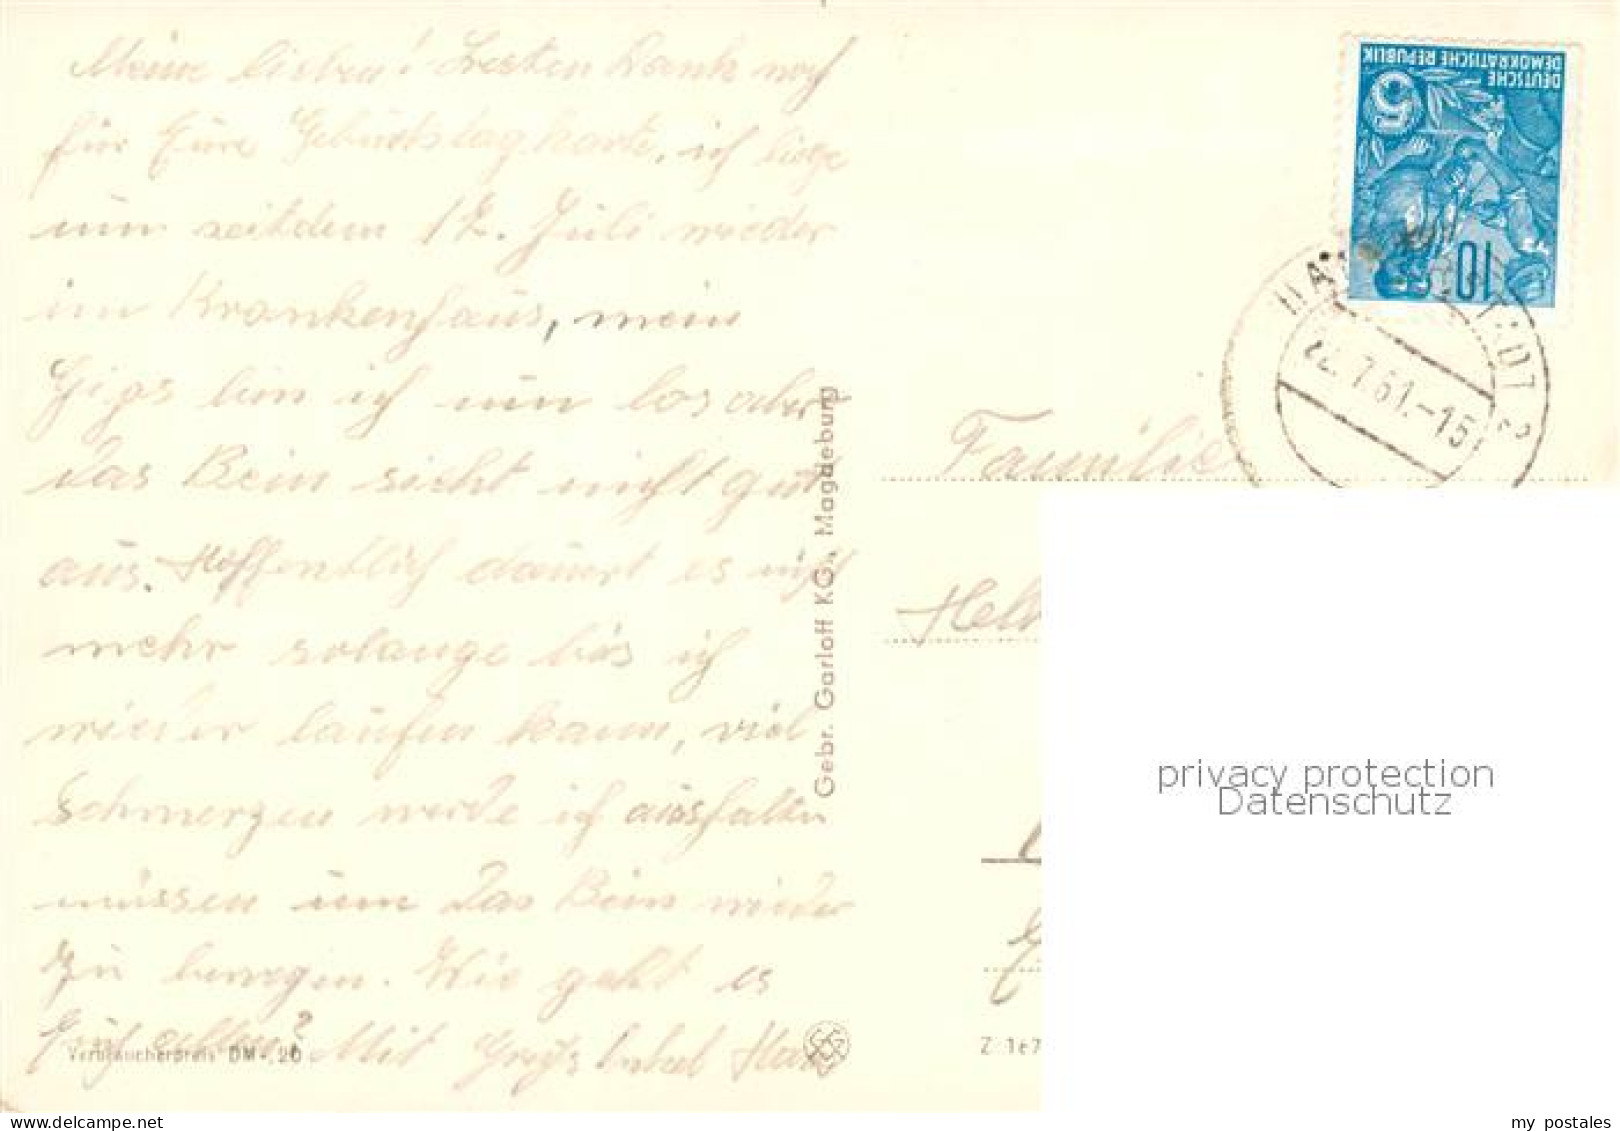 Meine lieben! Besten Dank noch
für Eure Geburtstagkarte, ich liege
nun seitdem 12. Juli wieder
im Krankenhaus, mein
Gips bin ich nun los aber
das Bein sieht nicht gut
aus. Hoffentlich dauert es nicht
mehr solange bis ich
wieder laufen kann, viel
Schmerzen werde ich aushalten
müssen um das Bein wieder
zu bewegen. Wie geht es
Euch allen? Mit Gruß
Verbraucherpreis DM -,20
Gebr. Garloff KG., Magdeburg
DEUTSCHE
DEMOKRATISCHE REPUBLIK
5
10
22.7.61.-15
Familie
Z 167
privacy protection
Datenschutz
www.ansichtskarten-center.de
my postales